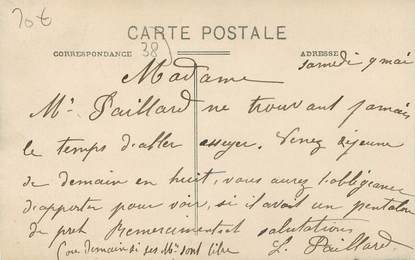 20€
CARTE POSTALE
CORRESPONDANCE
38
ADRESSE
samedi 9 mai
Madame
Mr Paillard ne trouvant jamais
le temps d'aller essayer. Venez déjeune
de demain en huit, vous aurez l'obligeance
d'apporter pour voir, si il avait un pantalon
de prêt Remerciements salutations
(ou demain si ses Mrs sont libre
L. Paillard.